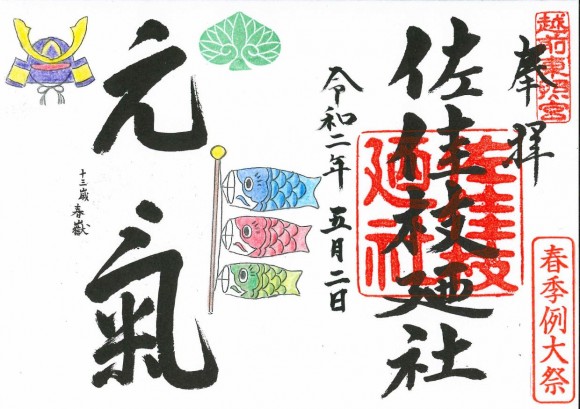 奉拝
越前東照宮
春季例大祭
佐佳枝廼社
佐佳枝
廼社
令和二年 五月二日
元氣
十三歳 春嶽